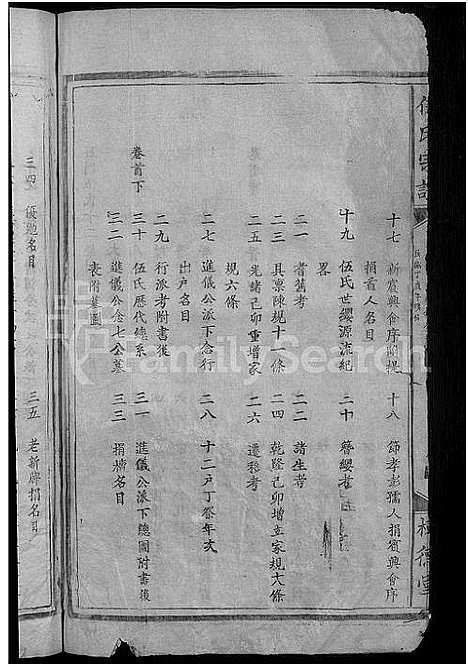 伍氏宗譜
十七 新賓興會序開捉 十八 節孝彭孺人捐賓興會序
捐看人名目
十九 伍氏世纓源流紀 二十 簪纓考
畧
二一 耆舊考 二二 諸生考
二三 具禀陳規十一條 二四 乾隆己卯增立家規六條
二五 光緒己卯重增家 二六 遷移考
規六條
二七 進儀公派下合行 二八 十二戶丁祭年次
出戶名目
二九 行派考附書後
卷首下
三十 伍氏歷代總系 三一 進儀公派下總圖附書後
三二 進儀公念七公墓 三三 捐楠名目
表附墓圖
三四 優勉名目 三五 老新牌捐名目
FamilySearch